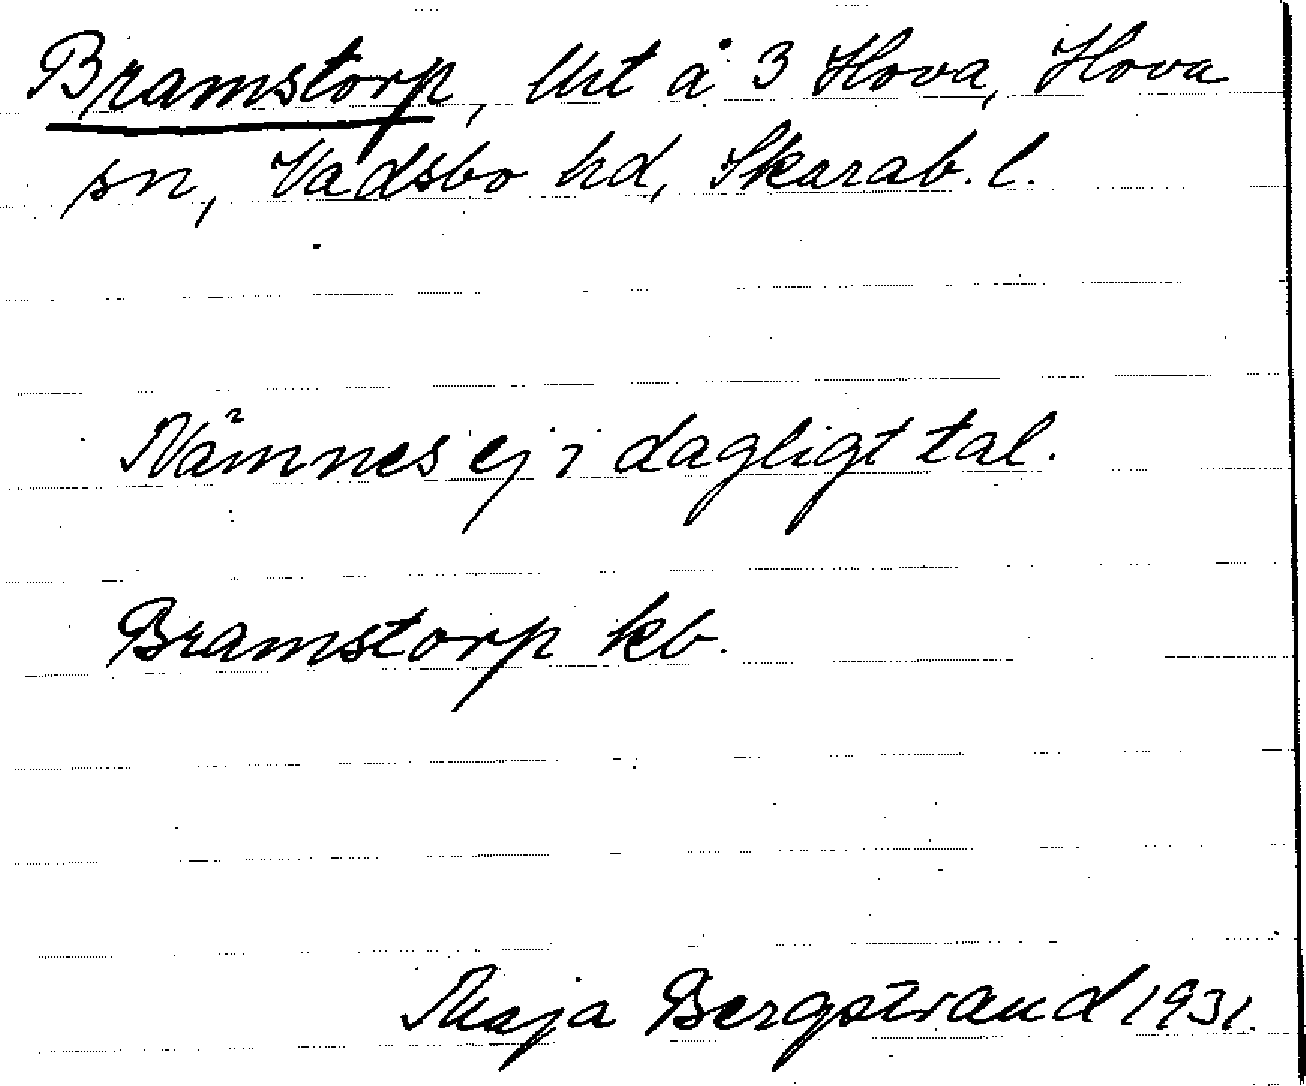 Bramstorp, lht å 3 Hova, Hova
sn, Vadsbo hd, Skarab. l.
Nämnes ej i dagligt tal.
Bramstorp kb.
Maja Bergstrand 1931.